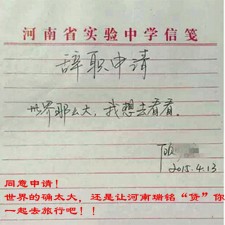 河南省实验中学信笺
辞职申请
世界那么大，我想去看看。
2015.4.13
同意申请！
世界的确太大，还是让河南瑞铭“贷”你
一起去旅行吧！！